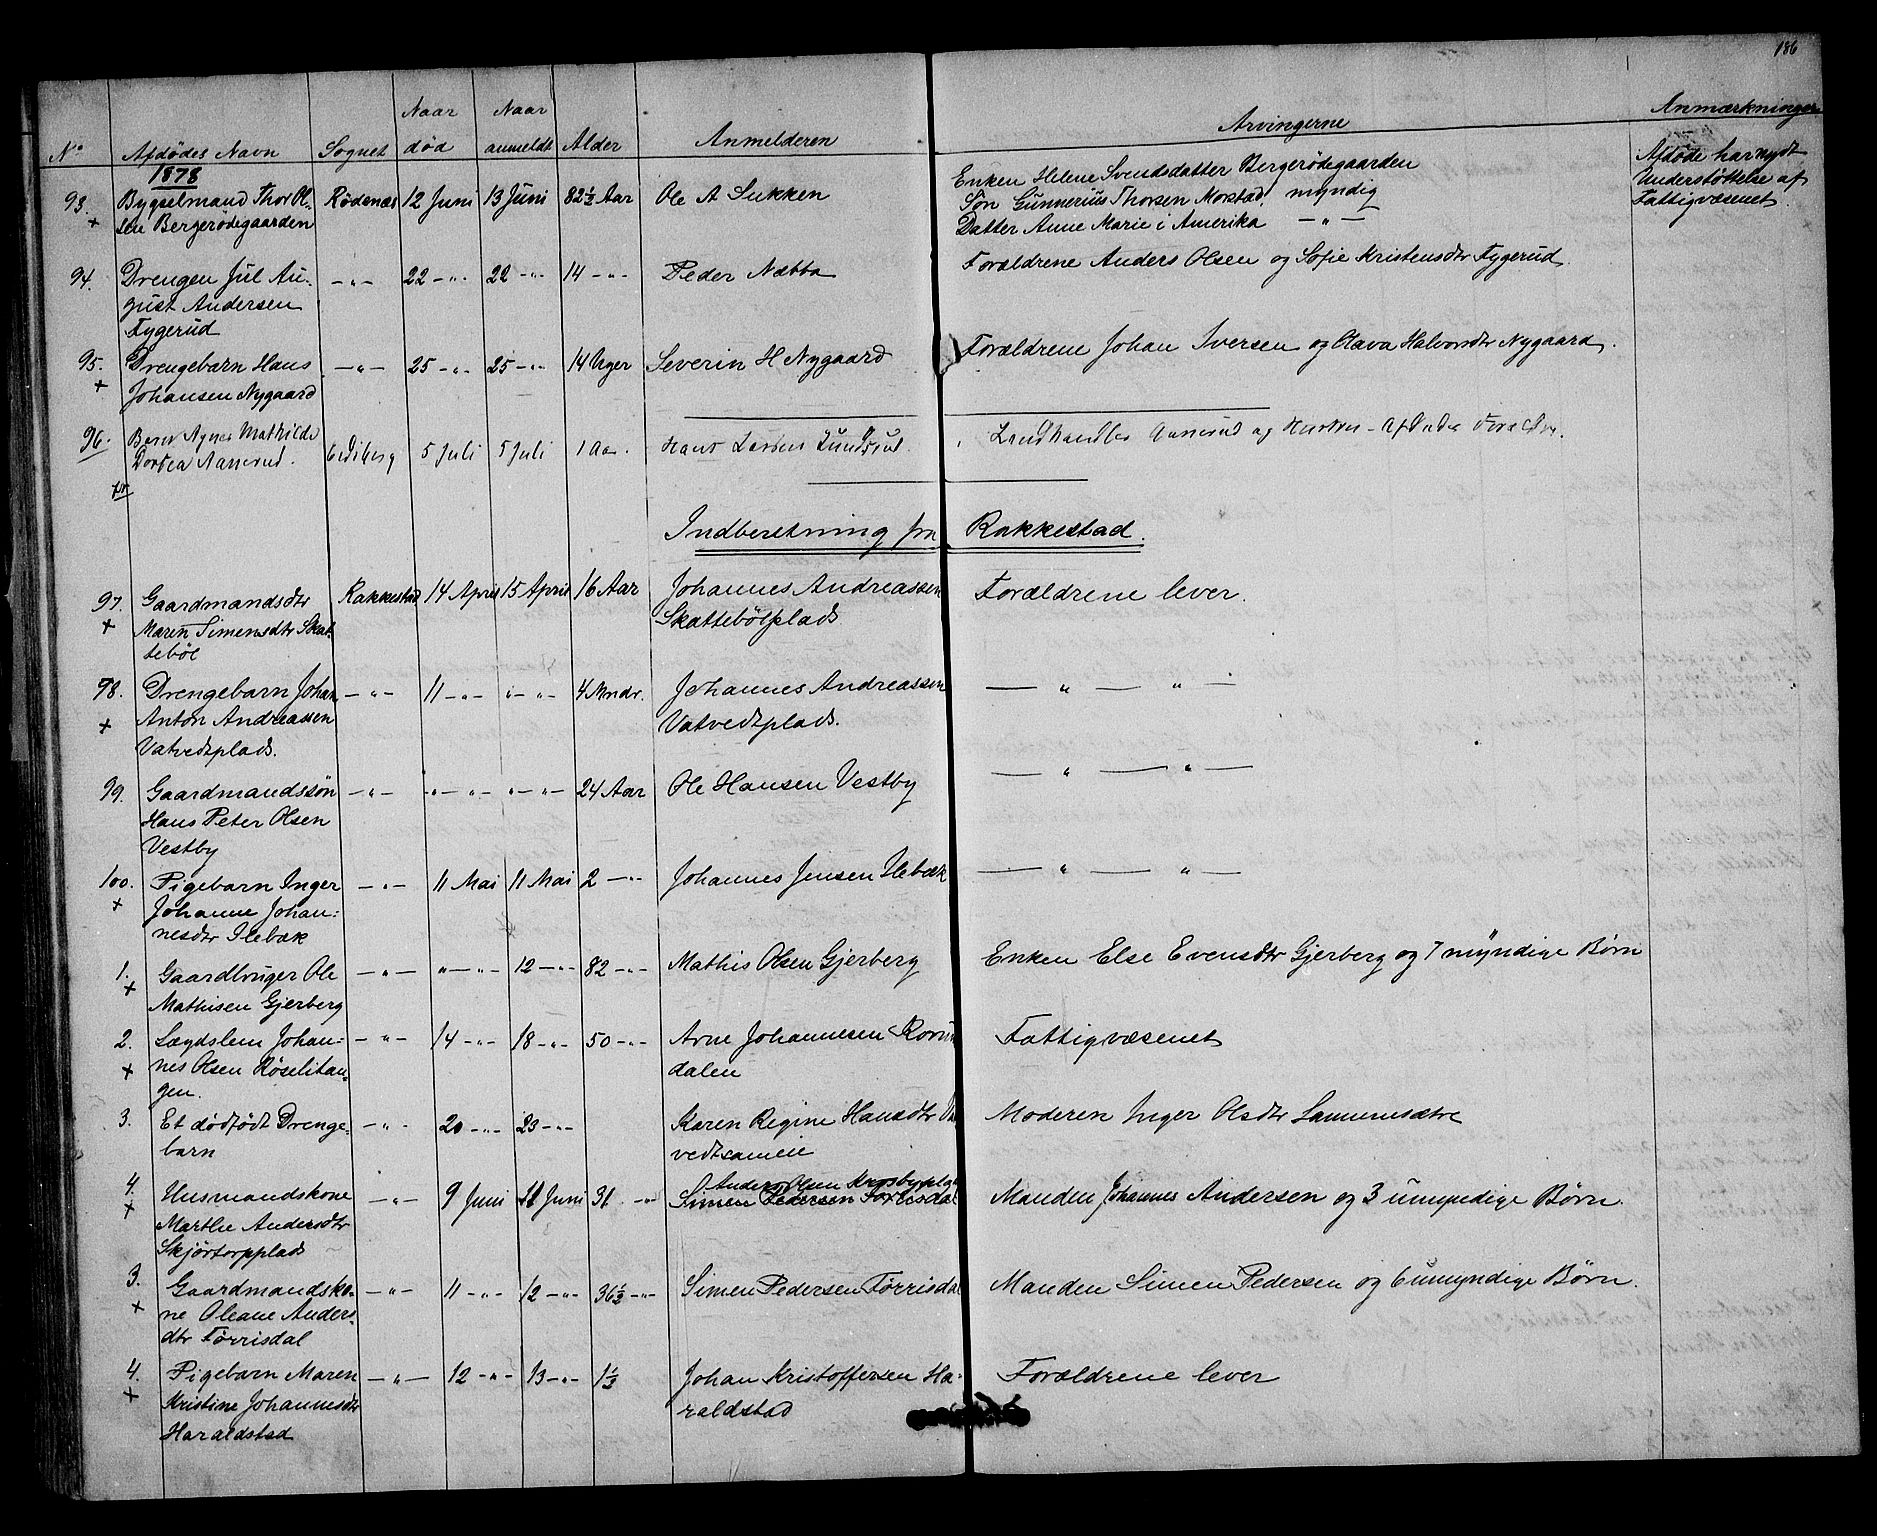 186
No Afdödes Navn Sognet Naar død Naar anmeldt Alder Anmelderen Arvingerne Anmærkninger
1878
93. Bygselmand Thor Ol- Rödenæs 12 Juni 13 Juni 82½ Aar Ole A Sukken Enken Helene Svendsdatter Bergerödegaarden Afdøde har nydt
+ sen Bergerödegaarden Søn Gunnerius Thorsen Morstad, myndig Understöttelse af
Datter Anne Marie i Amerika — " — Fattigvæsenet.
94. Drengen Jul Au- — " — 22 — " — 22 — " — 14 — " — Peder Næbba Forældrene Anders Olsen og Sofie Kristensdtr Fygerud.
gust Andersen
Fygerud
95. Drengebarn Hans — " — 25 — " — 25 — " — 14 Uger Severin H Nygaard Forældrene Johan Iversen og Olava Halvorsdtr Nygaard.
+ Johansen Nygaard
96. Barn Agnes Mathilde Eidsberg 5 Juli 5 Juli 1 Aar. Hans Larsen Landhandler Aaserud og Hustru - Afdødes Forældre.
Dortea Aaserud.
Indberetning fra Rakkestad.
97. Gaardmandsdtr Rakkestad 14 April 15 April 16 Aar Johannes Andreassen Forældrene lever.
+ Maren Simensdtr Skat- Skattebölplads
tebøl
98. Drengebarn Johan — " — 11 — " — " — " — 4 Mndr. Johannes Andreassen — " — " —
+ Anton Andreassen Vatvedtplads.
Vatvedtplads.
99. Gaardmandssön — " — " — " — " — " — 24 Aar Ole Hansen Vestby — " — " —
Hans Peter Olsen
Vestby
100. Pigebarn Inger — " — 11 Mai 11 Mai 2 — " — Johannes Jensen Ilebæk — " — " —
+ Johanne Johan-
nesdtr Ilebæk
1. Gaardbruger Ole — " — " — " — 12 — " — 82 — " — Mathis Olsen Gjerberg Enken Else Evensdtr Gjerberg og 7 myndige Børn
+ Mathisen Gjerberg
2. Lægdslem Johan- — " — 14 — " — 18 — " — 50 — " — Arne Johannesen Fattigvæsenet
+ nes Olsen Røselitan- dalen
gen.
3. Et dødfødt Drenge- — " — 20 — " — 23 — " — Karen Regine Hansdtr Moderen Inger Olsdtr
barn
4. Husmandskone — " — 9 Juni 11 Juni 31 — " — Anders Olsen Krosbyplads Manden Johannes Andersen og 3 umyndige Børn.
+ Marthe Andersdtr Simen Pedersen Førrisdal
Skjörtorpplads
3. Gaardmandsko- — " — 11 — " — 12 — " — 36½ — " — Simen Pedersen Førrisdal Manden Simen Pedersen og 6 umyndige Børn.
+ ne Oleane Anders-
dtr Førrisdal
4. Pigebarn Maren — " — 12 — " — 13 — " — 1⅓ Johan Kristoffersen Ha- Forældrene lever
+ Kristine Johannesdtr raldstad
Haraldstad